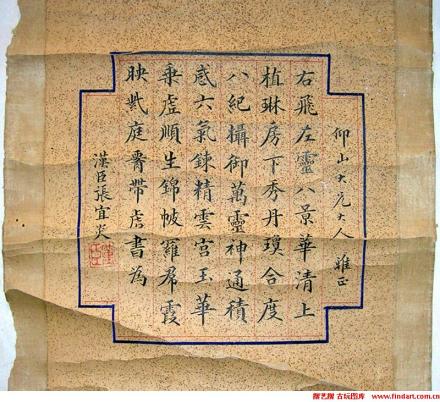 仰山大兄大人 雅正
右飛左靈八景華清上
植琳房下秀丹瓊合度
八紀攝御萬靈神通積
感六氣鍊精雲宮玉華
乘虛順生錦帔羅帬霞
映紫庭腎帶虎書為
漢臣張宜炎
搜艺搜 古玩图库
www.findart.com.cn